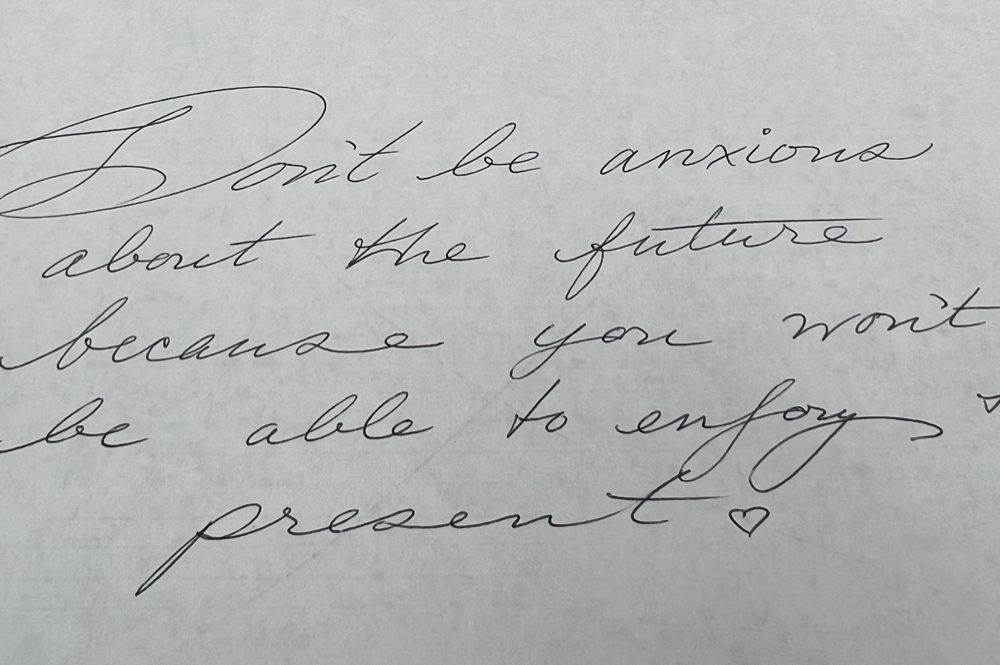 Don't be anxious
about the future
because you won't
be able to enjoy
present ♡